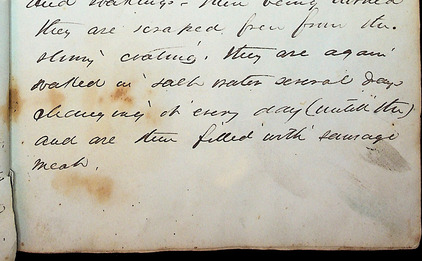 and soakings. Then being turned
they are scraped free from the
slimy coating. They are again
soaked in salt water several days
changeing it every day (untill the)
and are then filled with sausage
meat.